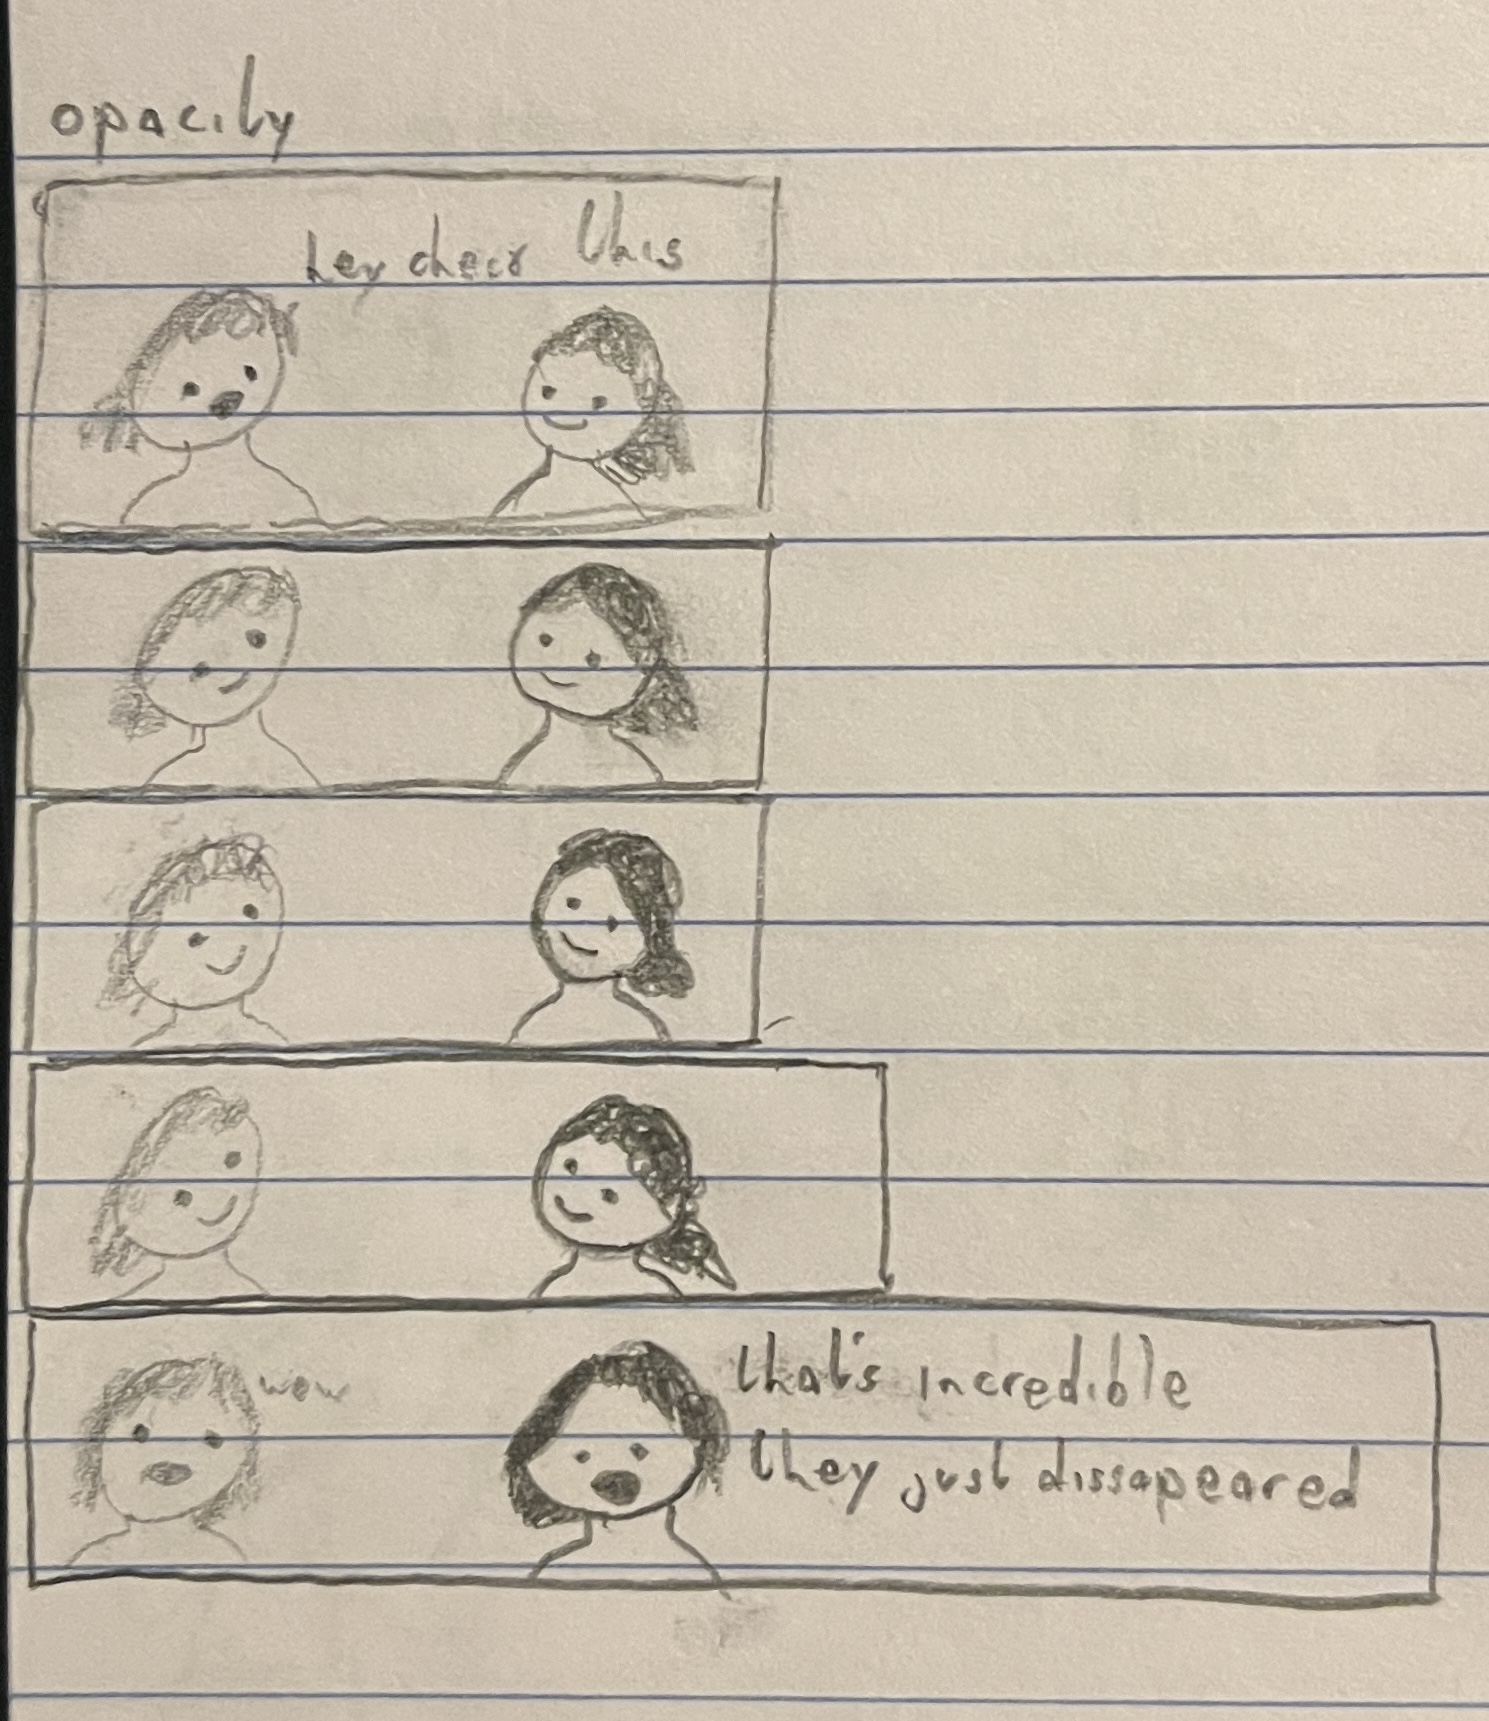 opacity
hey check this
wow
that's incredible
they just dissapeared